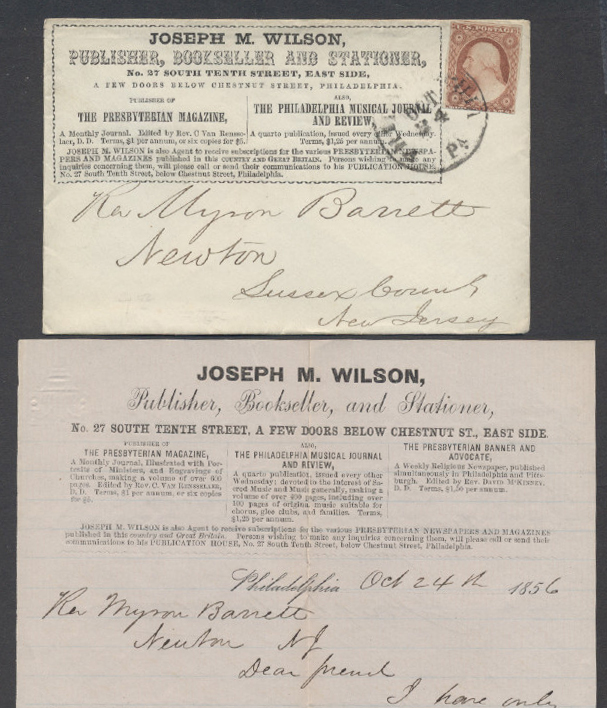 JOSEPH M. WILSON,
PUBLISHER, BOOKSELLER AND STATIONER,
No. 27 SOUTH TENTH STREET, EAST SIDE,
A FEW DOORS BELOW CHESTNUT STREET, PHILADELPHIA.
PUBLISHER OF
THE PRESBYTERIAN MAGAZINE,
A Monthly Journal. Edited by Rev. C Van Rensse-
laer, D. D. Terms, $1 per annum, or six copies for $5.
ALSO,
THE PHILADELPHIA MUSICAL JOURNAL
AND REVIEW,
A quarto publication, issued every other Wednesday.
Terms, per annum.
JOSEPH M. WILSON is also Agent to receive subscriptions for the various PRESBYTERIAN NEWSPA-
PERS AND MAGAZINES published in this COUNTRY AND GREAT BRITAIN. Persons wishing to make any
inquiries concerning them, will please call or send their communications to his PUBLICATION HOUSE,
No. 27 South Tenth Street, below Chestnut Street, Philadelphia.
U.S. POSTAGE
24
PA
Rev Myron Barrett
Newton
Sussex County
New Jersey
JOSEPH M. WILSON,
Publisher, Bookseller, and Stationer,
No. 27 SOUTH TENTH STREET, A FEW DOORS BELOW CHESTNUT ST., EAST SIDE.
PUBLISHER OF
THE PRESBYTERIAN MAGAZINE,
A Monthly Journal, Illustrated with Por-
traits of Ministers, and Engravings of
Churches, making a volume of over 600
pages. Edited by Rev. C. VAN RENSSELAER,
D. D. Terms, $1 per annum, or six copies
for $5.
ALSO,
THE PHILADELPHIA MUSICAL JOURNAL
AND REVIEW,
A quarto publication, issued every other
Wednesday; devoted to the interests of Sa-
cred Music and Music generally, making a
volume of over 400 pages, including over
100 pages of original music suitable for
chorus, glee clubs, and families. Terms,
$1,25 per annum.
THE PRESBYTERIAN BANNER AND
ADVOCATE,
A Weekly Religious Newspaper, published
simultaneously in Philadelphia and Pitts-
burgh. Edited by Rev. DAVID McKINNEY,
D. D. Terms, $1,50 per annum.
JOSEPH M. WILSON is also Agent to receive subscriptions for the various PRESBYTERIAN NEWSPAPERS AND MAGAZINES
published in this country and Great Britain. Persons wishing to make any inquiries concerning them, will please call or send their
communications to his PUBLICATION HOUSE, No. 27 South Tenth Street, below Chestnut Street, Philadelphia.
Philadelphia Oct 24th 1856
Rev Myron Barrett
Newton NJ
Dear friend
I have only